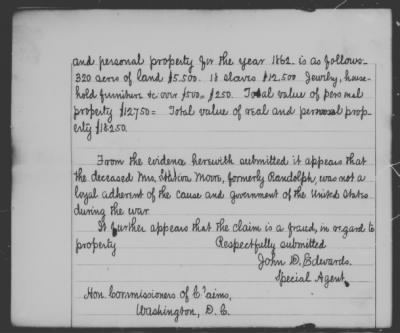 and personal property for the year 1862 is as follows-
320 acres of land $5.500. 18 slaves $12.500 Jewelry, house-
hold furniture &c over $500= $250. Total value of personal
property $12750= Total value of real and personal prop-
erty $18250.
From the evidence herewith submitted it appears that
the deceased Mrs. Moore, formerly Randolph, was not a
loyal adherent of the cause and government of the United States
during the war.
It further appears that the claim is a fraud, in regard to
property Respectfully submitted
John D. Edwards.
Special Agent,
Hon. Commissioners of Claims,
Washington, D. C.